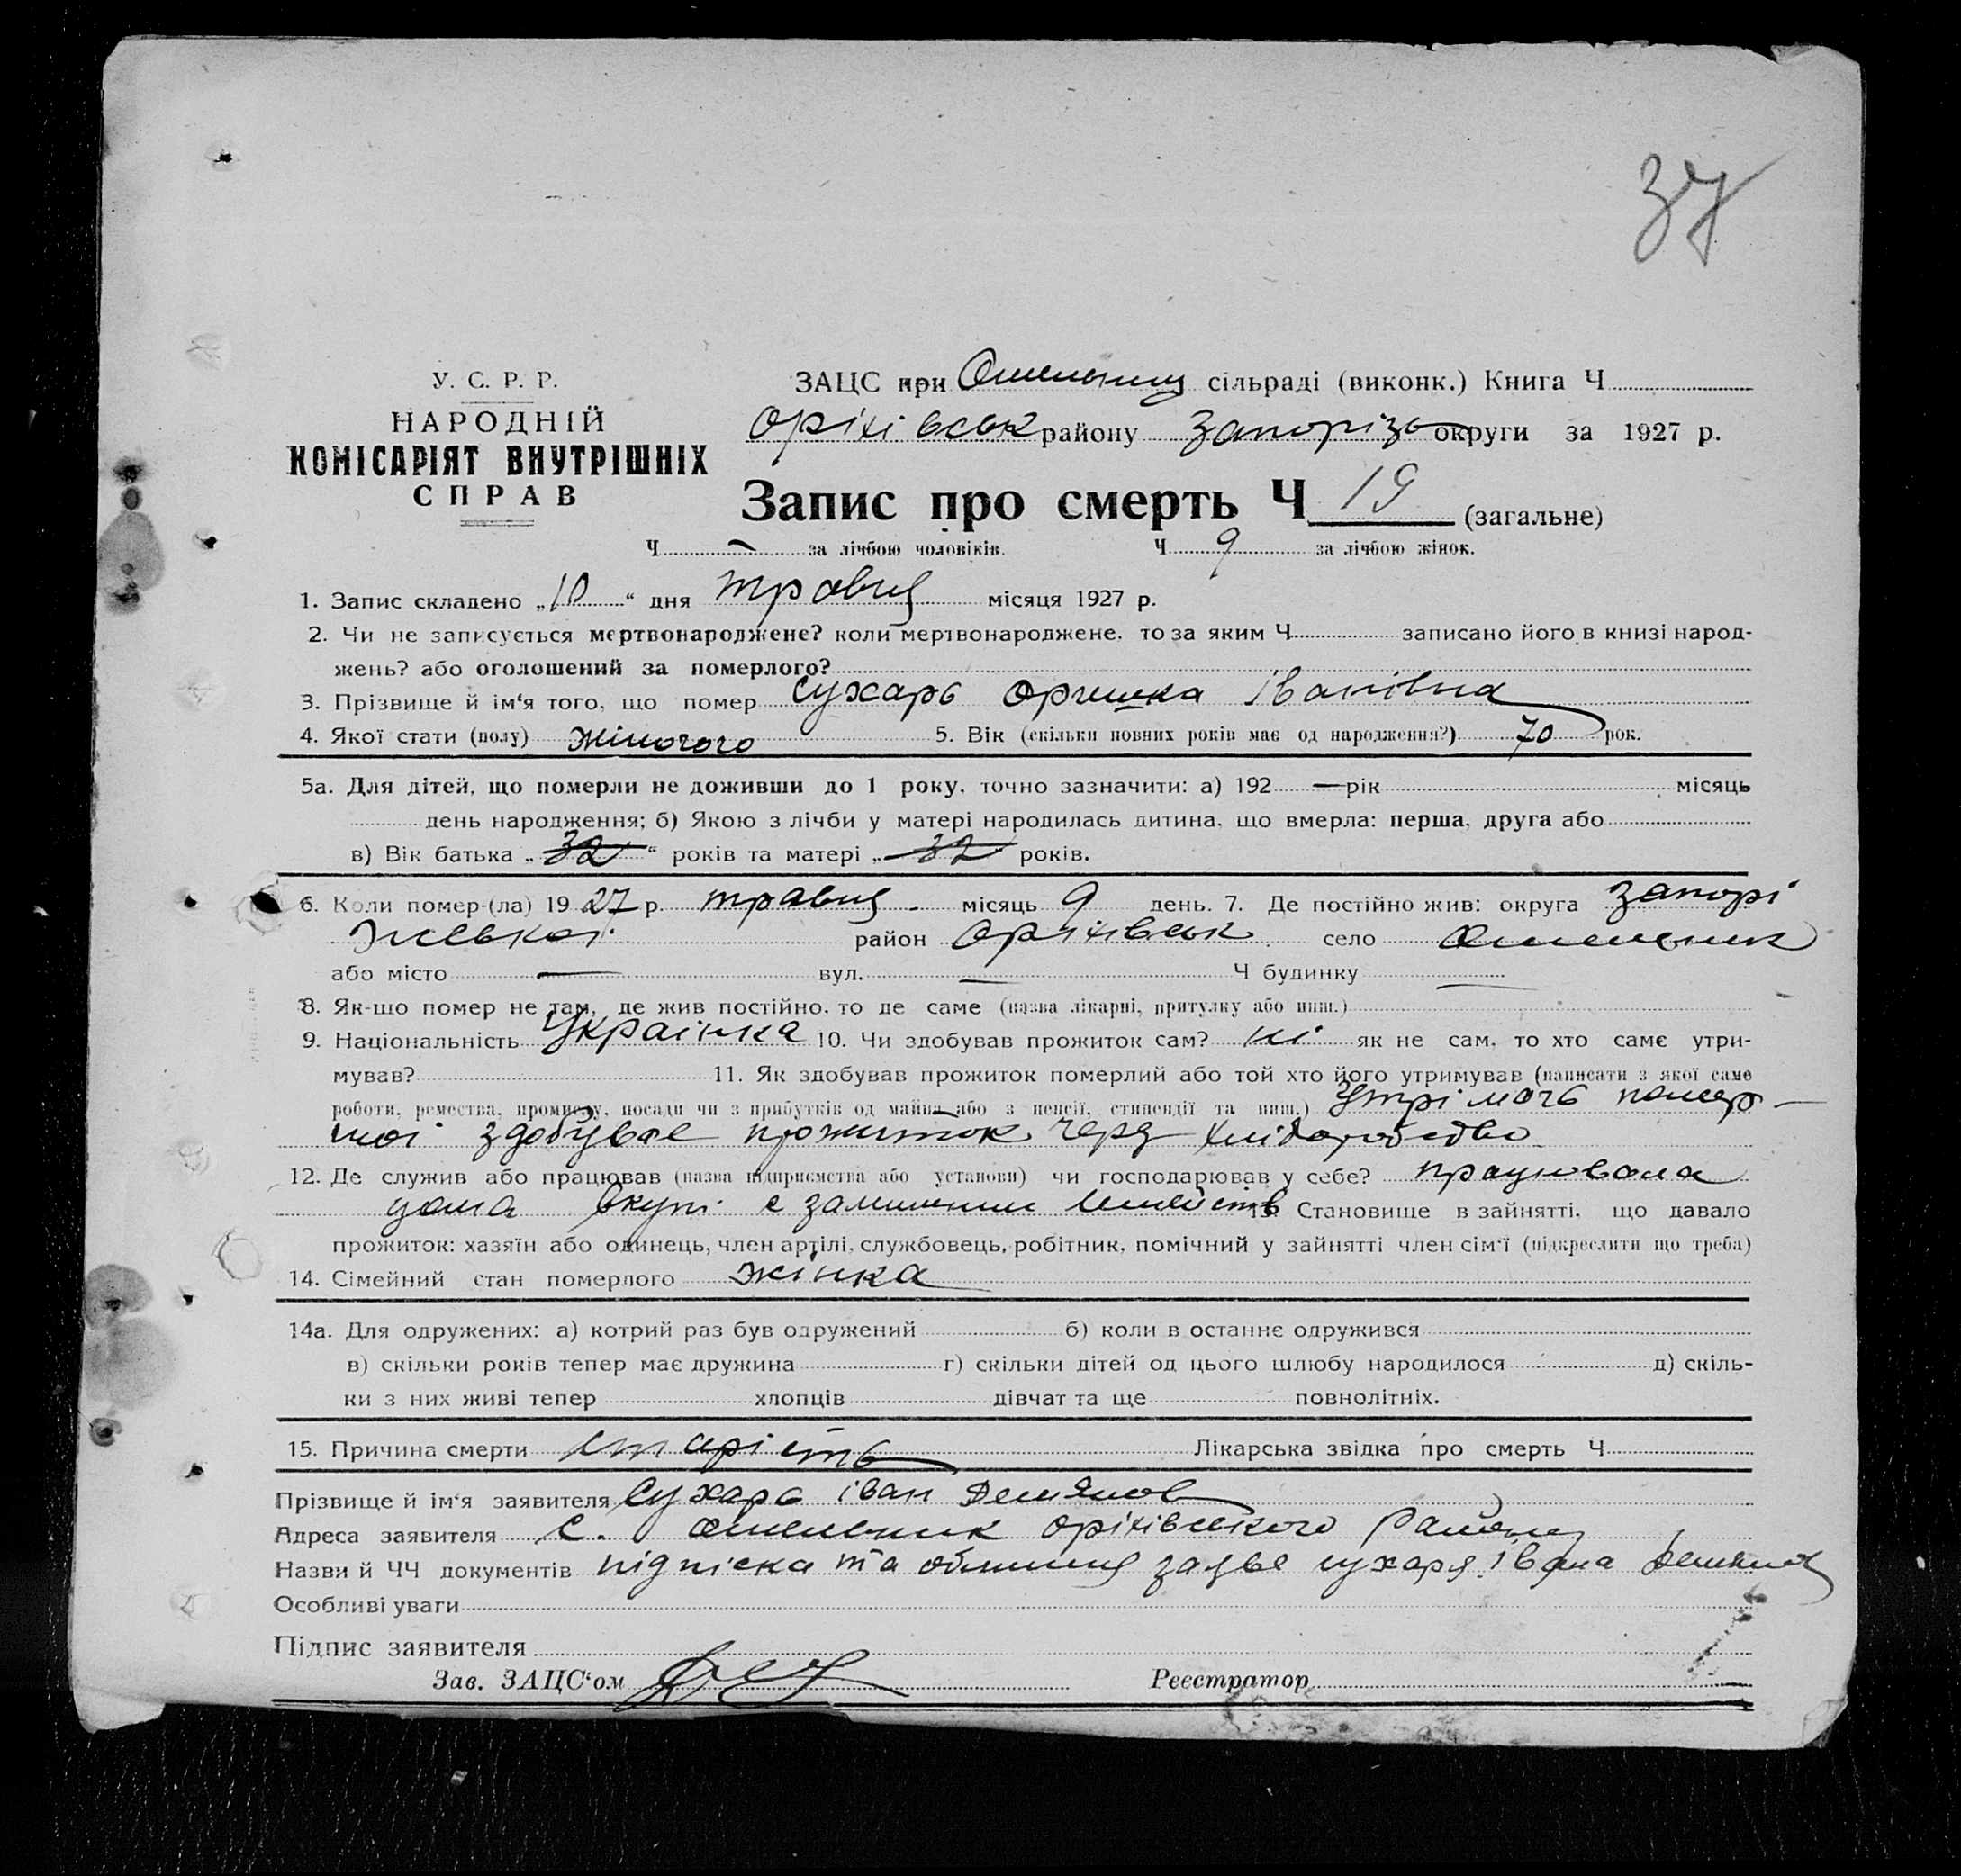 37
У. С. Р. Р.
НАРОДНІЙ
КОМІСАРІЯТ ВНУТРІШНІХ
СПРАВ
ЗАЦС при сільраді (виконк.) Книга Ч
Оріхівськ району Запорізь округи за 1927 р.
Запис про смерть Ч 19 (загальне)
Ч — за лічбою чоловіків. Ч 9 за лічбою жінок.
1. Запис складено „10“ дня травня місяця 1927 р.
2. Чи не записується мертвонароджене? коли мертвонароджене, то за яким Ч записано його в книзі народ-
жень? або оголошений за померлого?
3. Прізвище й ім‘я того, що помер Сухарь Оришка Іванівна
4. Якої стати (полу) жіночого 5. Вік (скільки повних років має од народження?) 70 рок.
5а. Для дітей, що померли не доживши до 1 року, точно зазначити: а) 192 — рік місяць
день народження; б) Якою з лічби у матері народилась дитина, що вмерла: перша, друга або
в) Вік батька „32“ років та матері „32 років.
6. Коли помер-(ла) 1927 р. травня місяць 9 день. 7. Де постійно жив: округа Запорі
жської район Оріхівськ село Омельник
або місто — вул. — Ч будинку —
8. Як-що помер не там, де жив постійно, то де саме (назва лікарні, притулку або инш.)
9. Національність Українка 10. Чи здобував прожиток сам? ні як не сам, то хто саме утри-
мував? 11. Як здобував прожиток померлий або той хто його утримував (написати з якої саме
роботи, ремества, промислу, посади чи з прибутків од майна або з пенсії, стипендії та инш.) Утрімачь помер-
шої здобувае прожиток через хліборобство
12. Де служив або працював (назва підприємства або установи) чи господарював у себе? працювала
дома вкупі с 13. Становище в зайнятті, що давало
прожиток: хазяїн або одинець, член артілі, службовець, робітник, помічний у зайнятті член сім‘ї (підкреслити що треба)
14. Сімейний стан померлого жінка
14а. Для одружених: а) котрий раз був одружений б) коли в останнє одружився
в) скільки років тепер має дружина г) скільки дітей од цього шлюбу народилося д) скіль-
ки з них живі тепер хлопців дівчат та ще повнолітніх.
15. Причина смерти старість Лікарська звідка про смерть Ч
Прізвище й ім‘я заявителя Сухарь Іван Демянов
Адреса заявителя с. Омельник Оріхівського Району
Назви й ЧЧ документів підписка та заява Сухаря Івана Демянов
Особливі уваги
Підпис заявителя
Зав. ЗАЦС‘ом Реєстратор